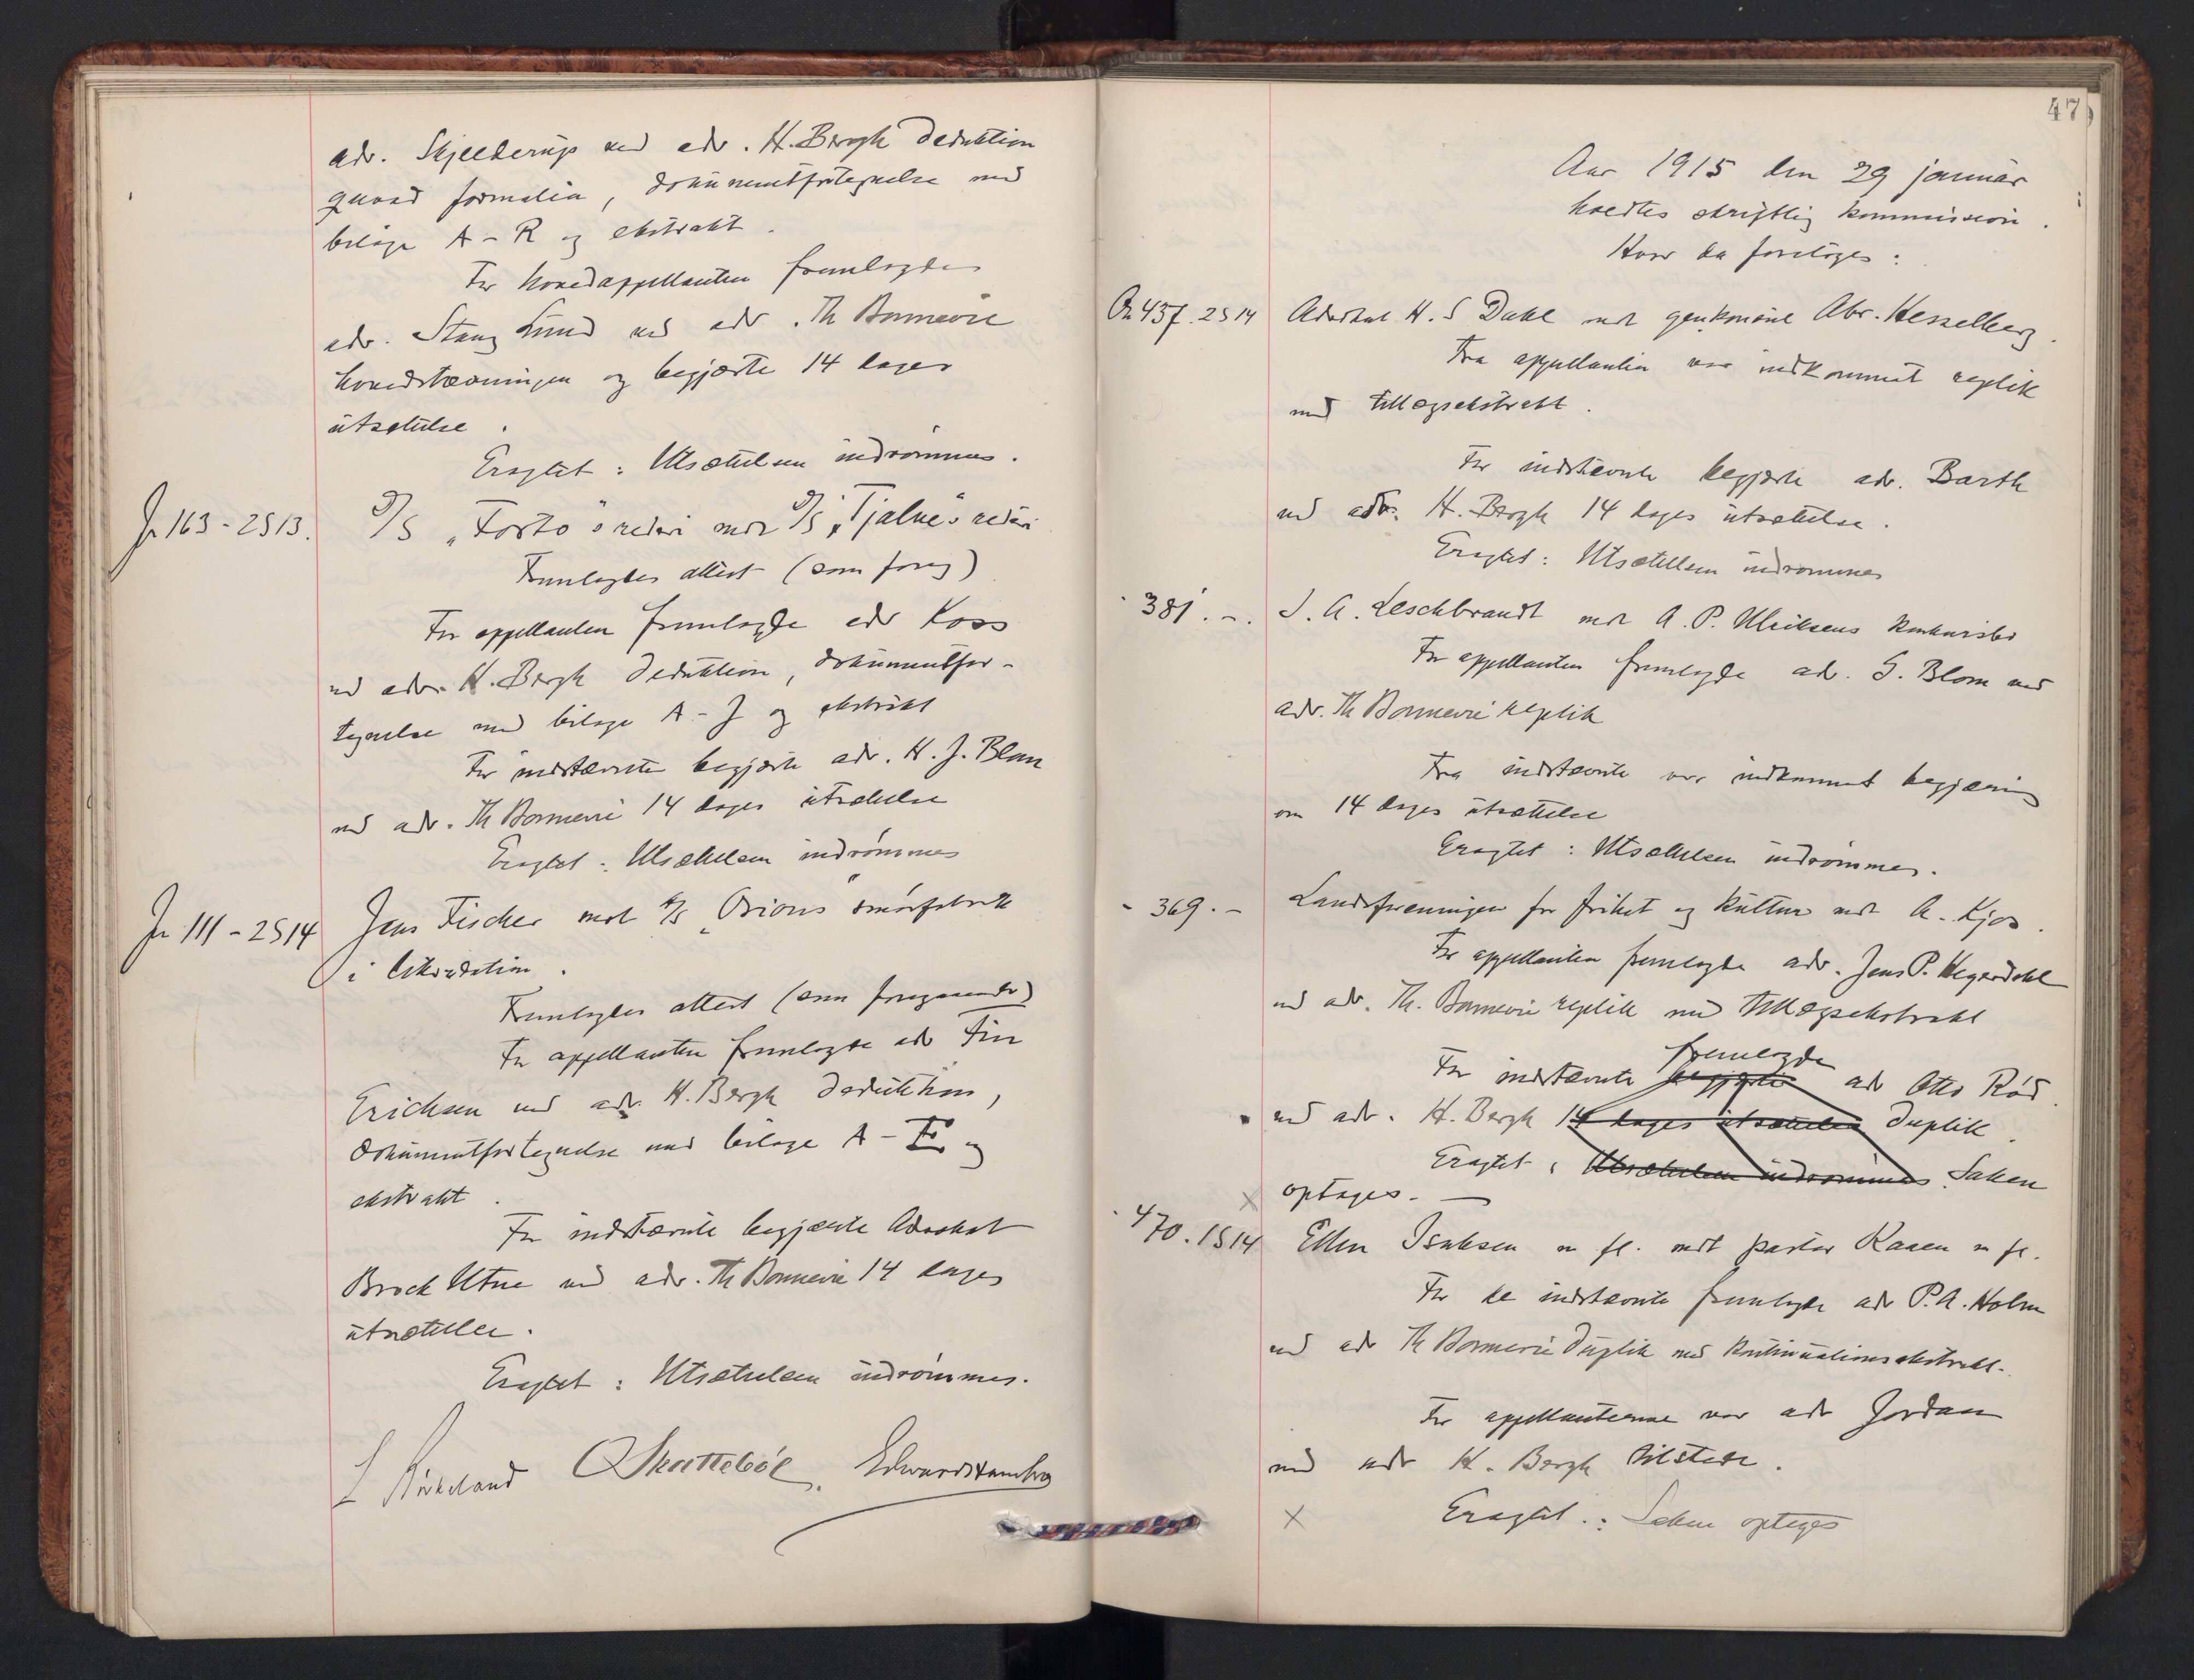 adv. Skjelderup ved adv. H. Bergh deduktion
quoad formalia, dokumentfortegnelse med
bilage A - R og ekstrakt.
For hovedappellanten fremlagde
adv. Stang Lund ved adv. Th Bonnevie
hovedstævningen og begjærte 14 dages
utsættelse.
Eragtet: Utsættelsen indrømmes.
Jr 163 - 2S13. D/S „Torito"s rederi mot D/S „Tjalve"s rederi
Fremlagdes attest (som foreg)
For appellanten fremlagde adv Koss
ved adv. H. Bergh deduktion, dokumentfor-
tegnelse med bilage A - J og ekstrakt
For indstævnte begjærte adv. H. J. Blom
ved adv. Th Bonnevie 14 dages utsættelse
Eragtet: Utsættelsen indrømmes
Jr 111 - 2S14 Jens Fischer mot A/S „Orions" smørfabrik
i likvidation.
Fremlagdes attest (som foregaaende)
For appellanten fremlagde adv Finn
Erichsen ved adv. H. Bergh deduktion,
dokumentfortegnelse med bilage A - F og
ekstrakt.
For indstævnte begjærte Advokat
Brock Utne ved adv. Th Bonnevie 14 dages
utsættelse.
Eragtet: Utsættelsen indrømmes.
Birkeland Skattebøl. Edward Hambro
47
Aar 1915 den 29 januar
holdtes skriftlig kommission.
Hvor da foretoges:
437. 2S14 Advokat H. S Dahl mot genkonsul Abr. Hesselberg.
Fra appellanten var indkommet replik
med tillægsekstrakt.
For indstævnte begjærte adv. Barth
ved adv. H. Bergh 14 dages utsættelse.
Eragtet: Utsættelsen indrømmes
" 381. -. J. A. Leschbrandt mot A. P. Ulriksens konkursbo
For appellanten fremlagde adv. S. Blom ved
adv. Th Bonnevie replik
Fra indstævnte var indkommet begjæring
om 14 dages utsættelse
Eragtet: Utsættelsen indrømmes.
" 369. - Landsforeningen for frihet og kultur mot A. Kjos.
For appellanten fremlagde adv. Jens P. Heyerdahl
ved adv. Th. Bonnevie replik med tillægsekstrakt
For indstævnte begjærte fremlagde adv Otto Röd
ved adv. H. Bergh 14 dages utsættelse duplik.
Eragtet: Utsættelsen indrømmes Saken
x optages. -
" 470. 1S14 Ellen Isaksen m fl. mot pastor Kaaen m fl.
For de indstævnte fremlagde adv P. A. Holm
ved adv Th Bonnevie duplik med kontinuationsekstrakt.
For appellanterne var adv Jordan
ved adv H. Bergh tilstede.
x Eragtet: Saken optages